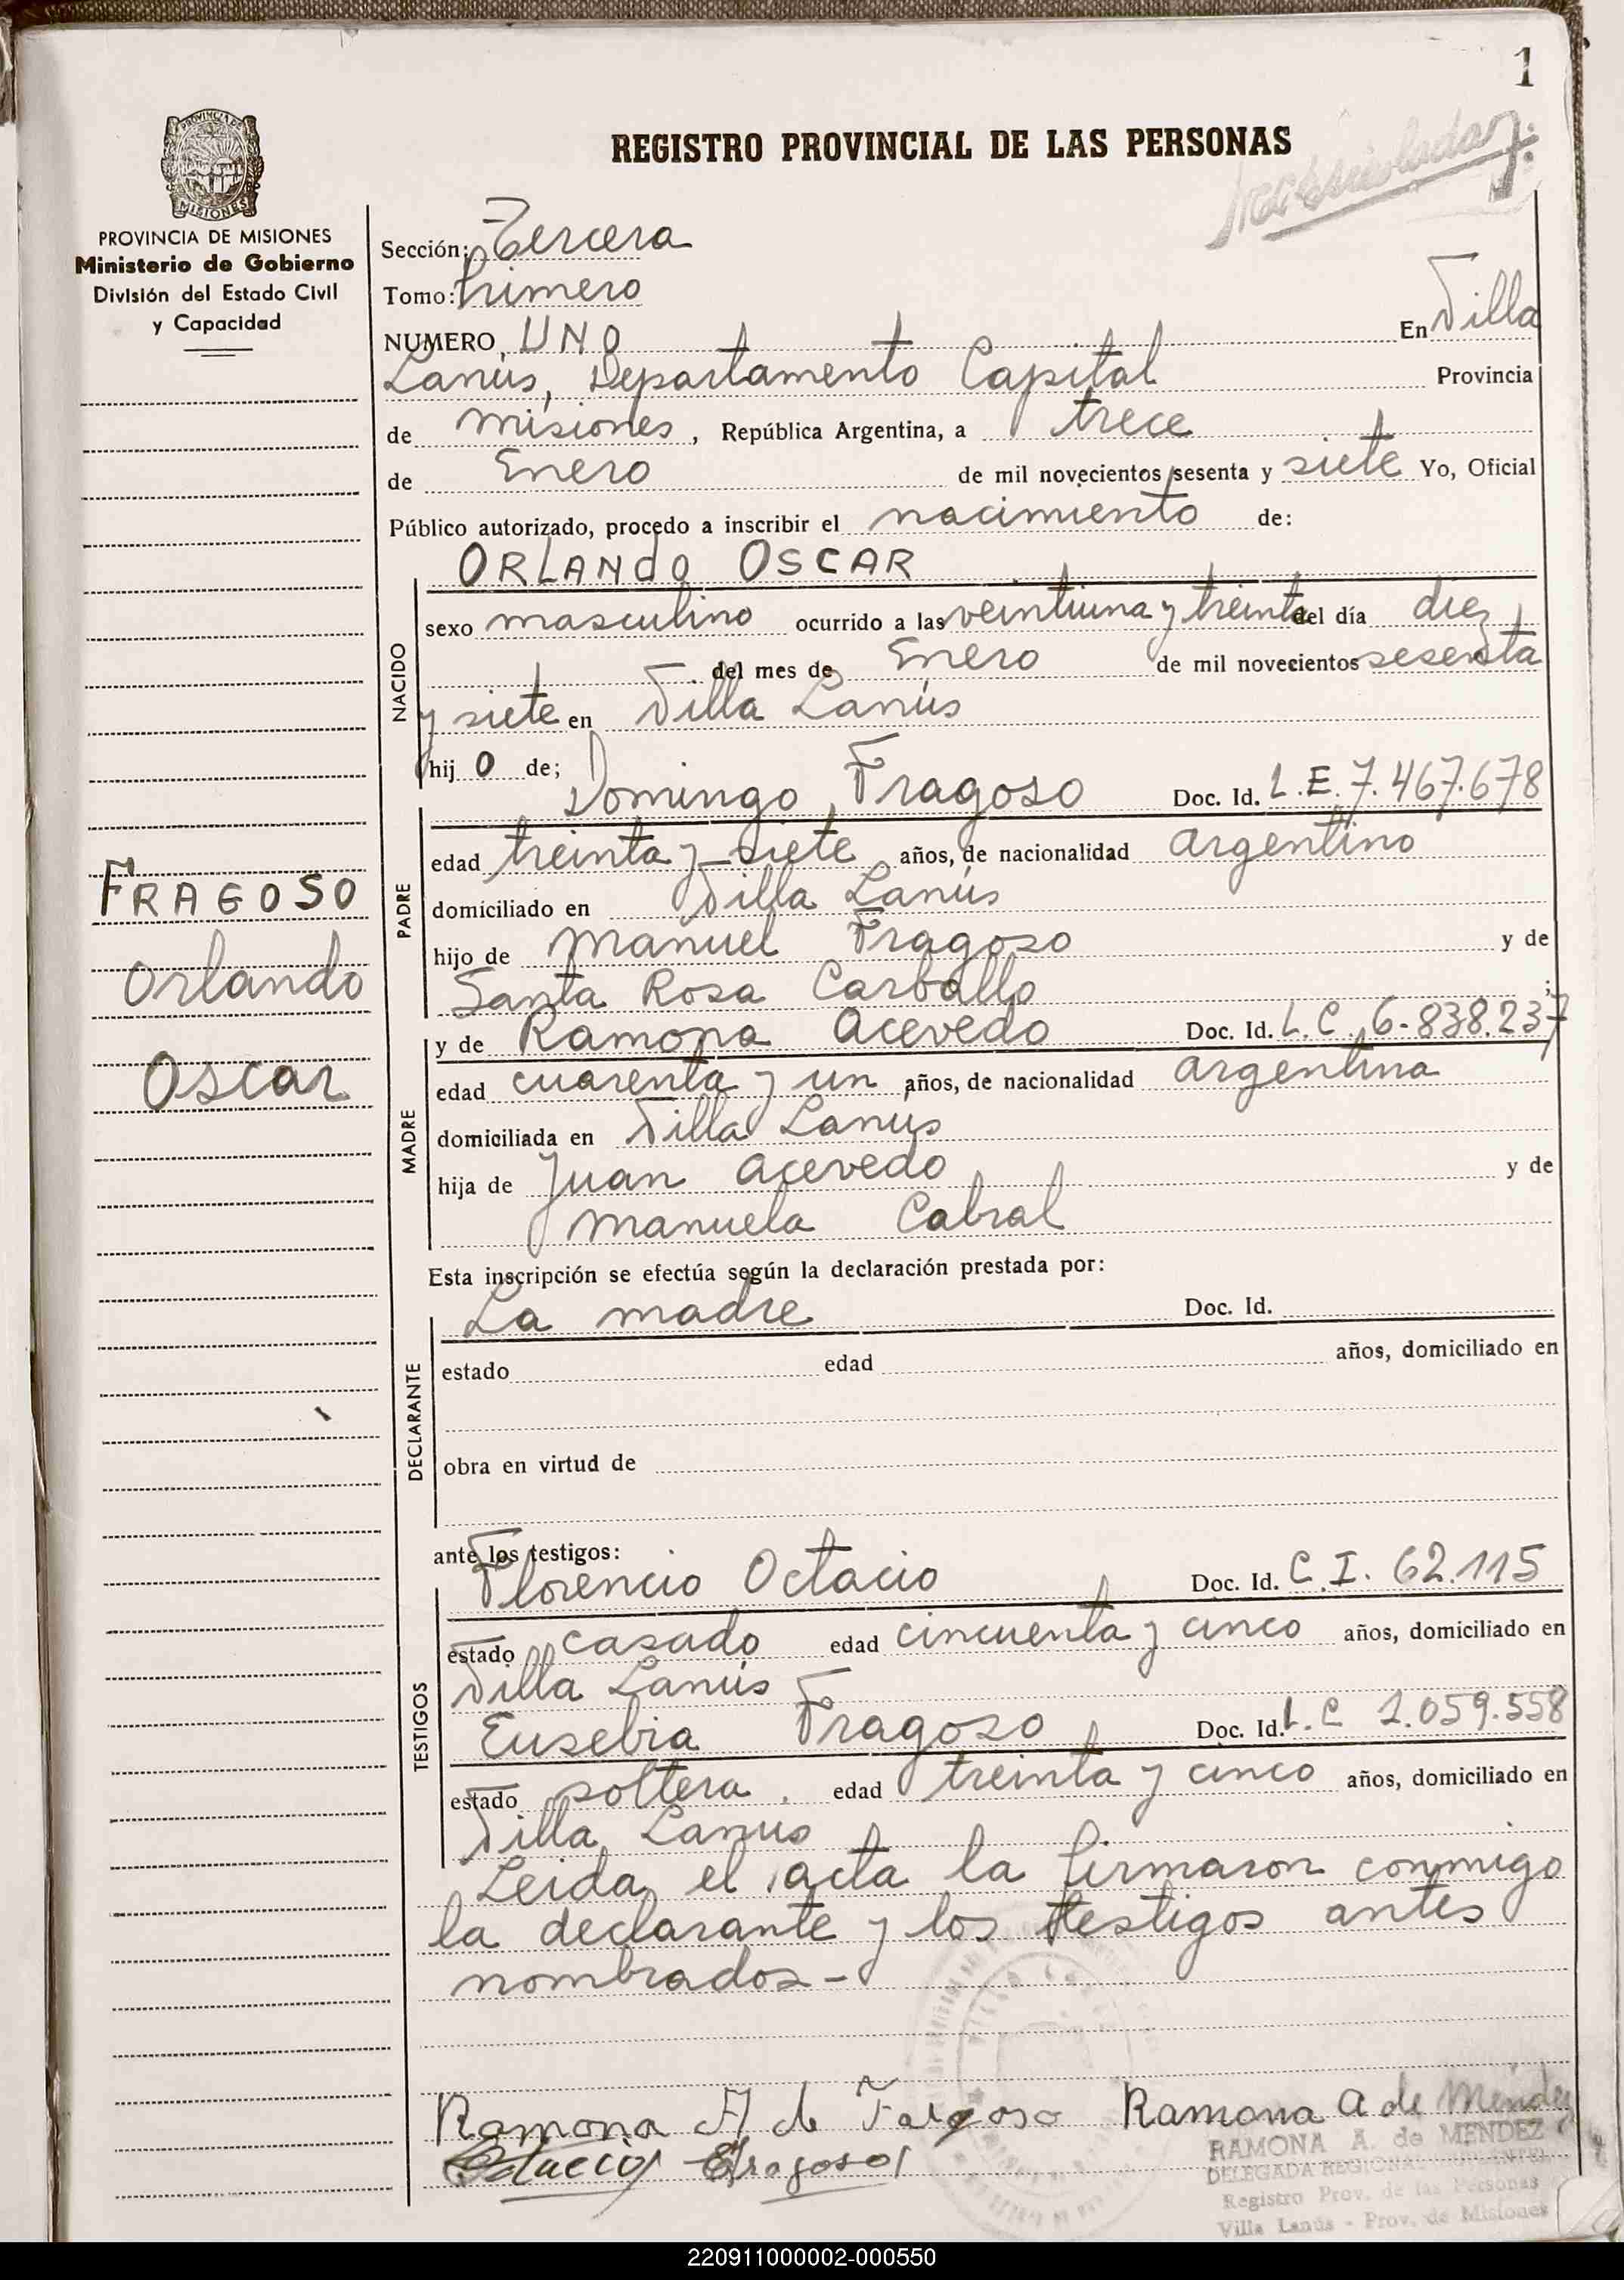 1
REGISTRO PROVINCIAL DE LAS PERSONAS
PROVINCIA DE MISIONES
Ministerio de Gobierno
División del Estado Civil
y Capacidad
Sección: Tercera
Tomo: Primero
NUMERO UNO En Villa
Lanús, Departamento Capital Provincia
de Misiones, República Argentina, a trece
de Enero de mil novecientos sesenta y siete Yo, Oficial
Público autorizado, procedo a inscribir el nacimiento de:
ORLANDO OSCAR
NACIDO
sexo masculino ocurrido a las veintiuna y treinta del día diez
del mes de Enero de mil novecientos sesenta
y siete en Villa Lanús
hij o de; Domingo Fragoso Doc. Id. L.E. 7.467.678
PADRE
edad treinta y siete años, de nacionalidad argentino
domiciliado en Villa Lanús
hijo de Manuel Fragoso y de
Santa Rosa Carballo ;
y de Ramona Acevedo Doc. Id. L.C. 6.838.237
MADRE
edad cuarenta y un años, de nacionalidad argentina
domiciliada en Villa Lanus
hija de Juan Acevedo y de
Manuela Cabral
FRAGOSO
Orlando
Oscar
Esta inscripción se efectúa según la declaración prestada por:
La madre Doc. Id.
DECLARANTE
estado edad años, domiciliado en
obra en virtud de
ante los testigos:
Florencio Octacio Doc. Id. C.I. 62.115
TESTIGOS
estado casado edad cincuenta y cinco años, domiciliado en
Villa Lanús
Eusebia Fragoso Doc. Id. L.C 1.059.558
estado soltera. edad treinta y cinco años, domiciliado en
Villa Lanus
Leida el acta la firmaron conmigo
la declarante y los testigos antes
nombrados -
Ramona A de Fargoso Ramona A de Méndez
EFragoso
RAMONA A. de MENDEZ
DELEGADA REGIONAL SUPLENTE
Registro Prov. de las Personas
Villa Lanús - Prov. de Misiones
220911000002-000550